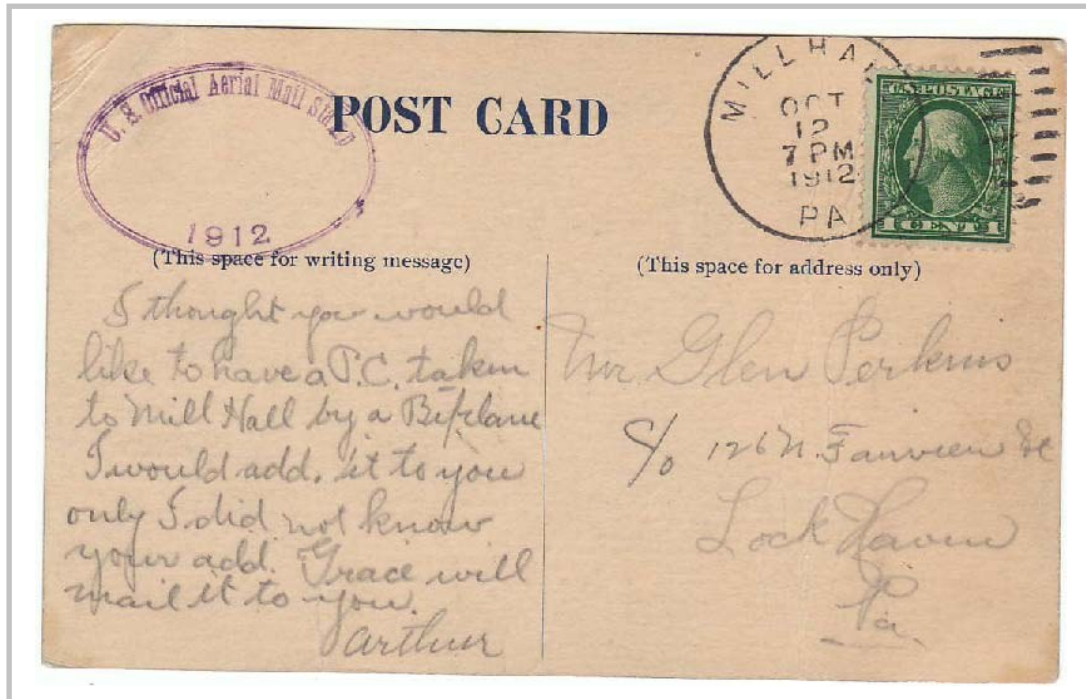 U. S Official Aerial Mail Stamp
1912
POST CARD
MILLHALL
OCT
12
7 PM
1912
PA
U.S. POSTAGE
1 CENT 1
(This space for writing message)
(This space for address only)
I thought you would
like to have a P.C. taken
to Mill Hall by a Biplane
I would add. it to you
only I did not know
your add. Grace will
mail it to you.
Arthur
Mr Glen Perkins
c/o 126 N. Fairview St
Lock Haven
Pa.